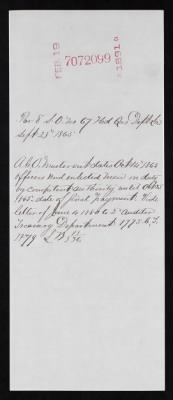 FEB 19
7072099
1891
Par 8 S.O. No 67 Hd Qrs Dept
Sept 23" 1865
A.C.O. Muster out dates Oct 14" 1865
officers and enlisted men on duty
by competent authority until Oct 25
1865. date of final payment. Vide
letter of June 4 1886 to 2" Auditor
Treasury Department. 1773. C. T.
1879